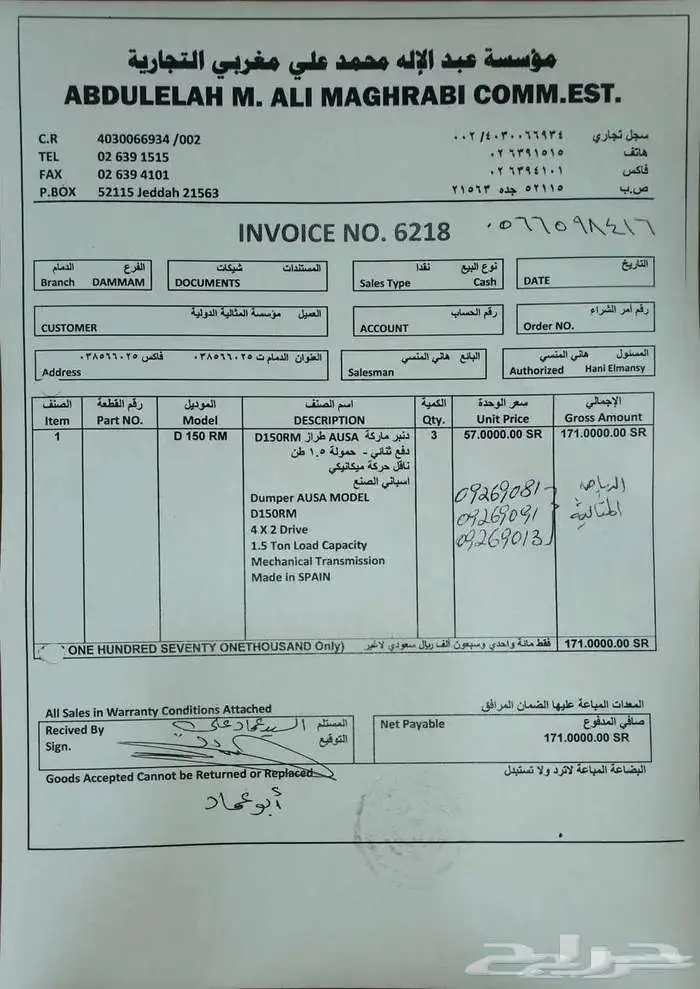 مؤسسة عبد الإله محمد علي مغربي التجارية
ABDULELAH M. ALI MAGHRABI COMM.EST.
C.R 4030066934 /002 سجل تجاري ٠٠٢/٤٠٣٠٠٦٦٩٣٤
TEL 02 639 1515 هاتف ٠٢ ٦٣٩١٥١٥
FAX 02 639 4101 فاكس ٠٢ ٦٣٩٤١٠١
P.BOX 52115 Jeddah 21563 ص.ب ٥٢١١٥ جده ٢١٥٦٣
INVOICE NO. 6218 ٠٥٦٦٠٩٨٤١٦
الفرع الدمام المستندات شيكات نوع البيع نقدا التاريخ
Branch DAMMAM DOCUMENTS Sales Type Cash DATE
العميل مؤسسة المثالية الدولية رقم الحساب رقم أمر الشراء
CUSTOMER ACCOUNT Order NO.
العنوان الدمام ت ٠٣٨٥٦٦٠٢٥ فاكس ٠٣٨٥٦٦٠٢٥ البائع هاني المنسي المسئول هاني المنسي
Address Salesman Authorized Hani Elmansy
الصنف رقم القطعة الموديل اسم الصنف الكمية سعر الوحدة الإجمالي
Item Part NO. Model DESCRIPTION Qty. Unit Price Gross Amount
1 D 150 RM دنبر ماركة AUSA طراز D150RM 3 57.0000.00 SR 171.0000.00 SR
دفع ثنائي - حمولة ١.٥ طن
ناقل حركة ميكانيكي
اسباني الصنع
Dumper AUSA MODEL
D150RM
4 X 2 Drive
1.5 Ton Load Capacity
Mechanical Transmission
Made in SPAIN
09269081
09269091
09269013
المثالية
ONE HUNDRED SEVENTY ONETHOUSAND Only) فقط مائة واحدي وسبعون ألف ريال سعودي لاغير 171.0000.00 SR
All Sales in Warranty Conditions Attached المعدات المباعة عليها الضمان المرافق
Recived By السيد عماد علي المستلم
Sign. التوقيع
Net Payable صافي المدفوع
171.0000.00 SR
Goods Accepted Cannot be Returned or Replaced البضاعة المباعة لاترد ولا تستبدل
أبو عماد
حراج